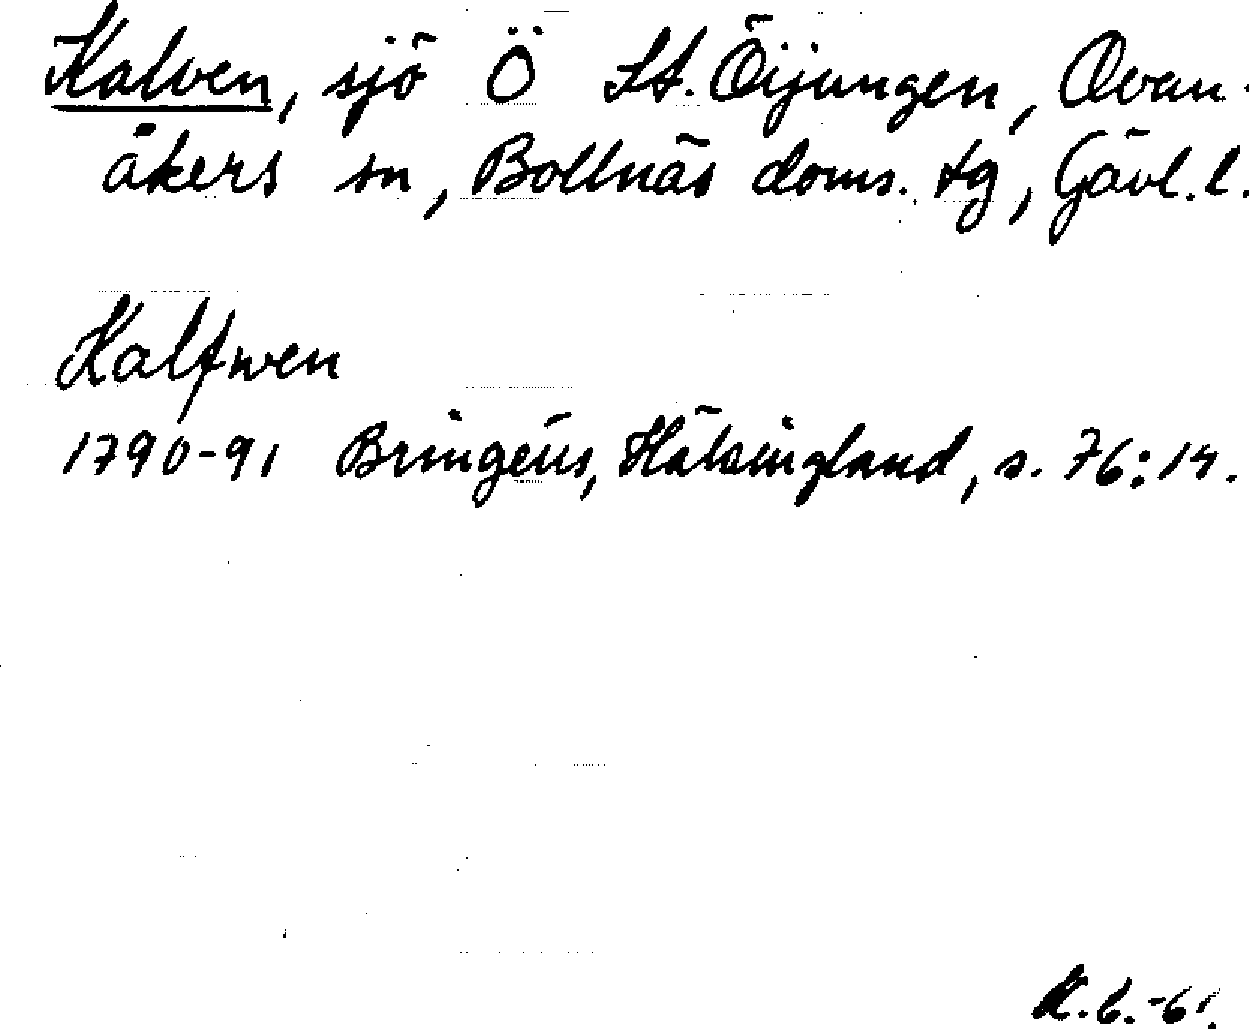 Kalven, sjö Ö St. Öijungen, Ovan-
åkers sn, Bollnäs doms. tg, Gävl. l.
Kalfwen
1790-91 Bringéus, Hälsingland, s. 76:14.
K.B.-61.